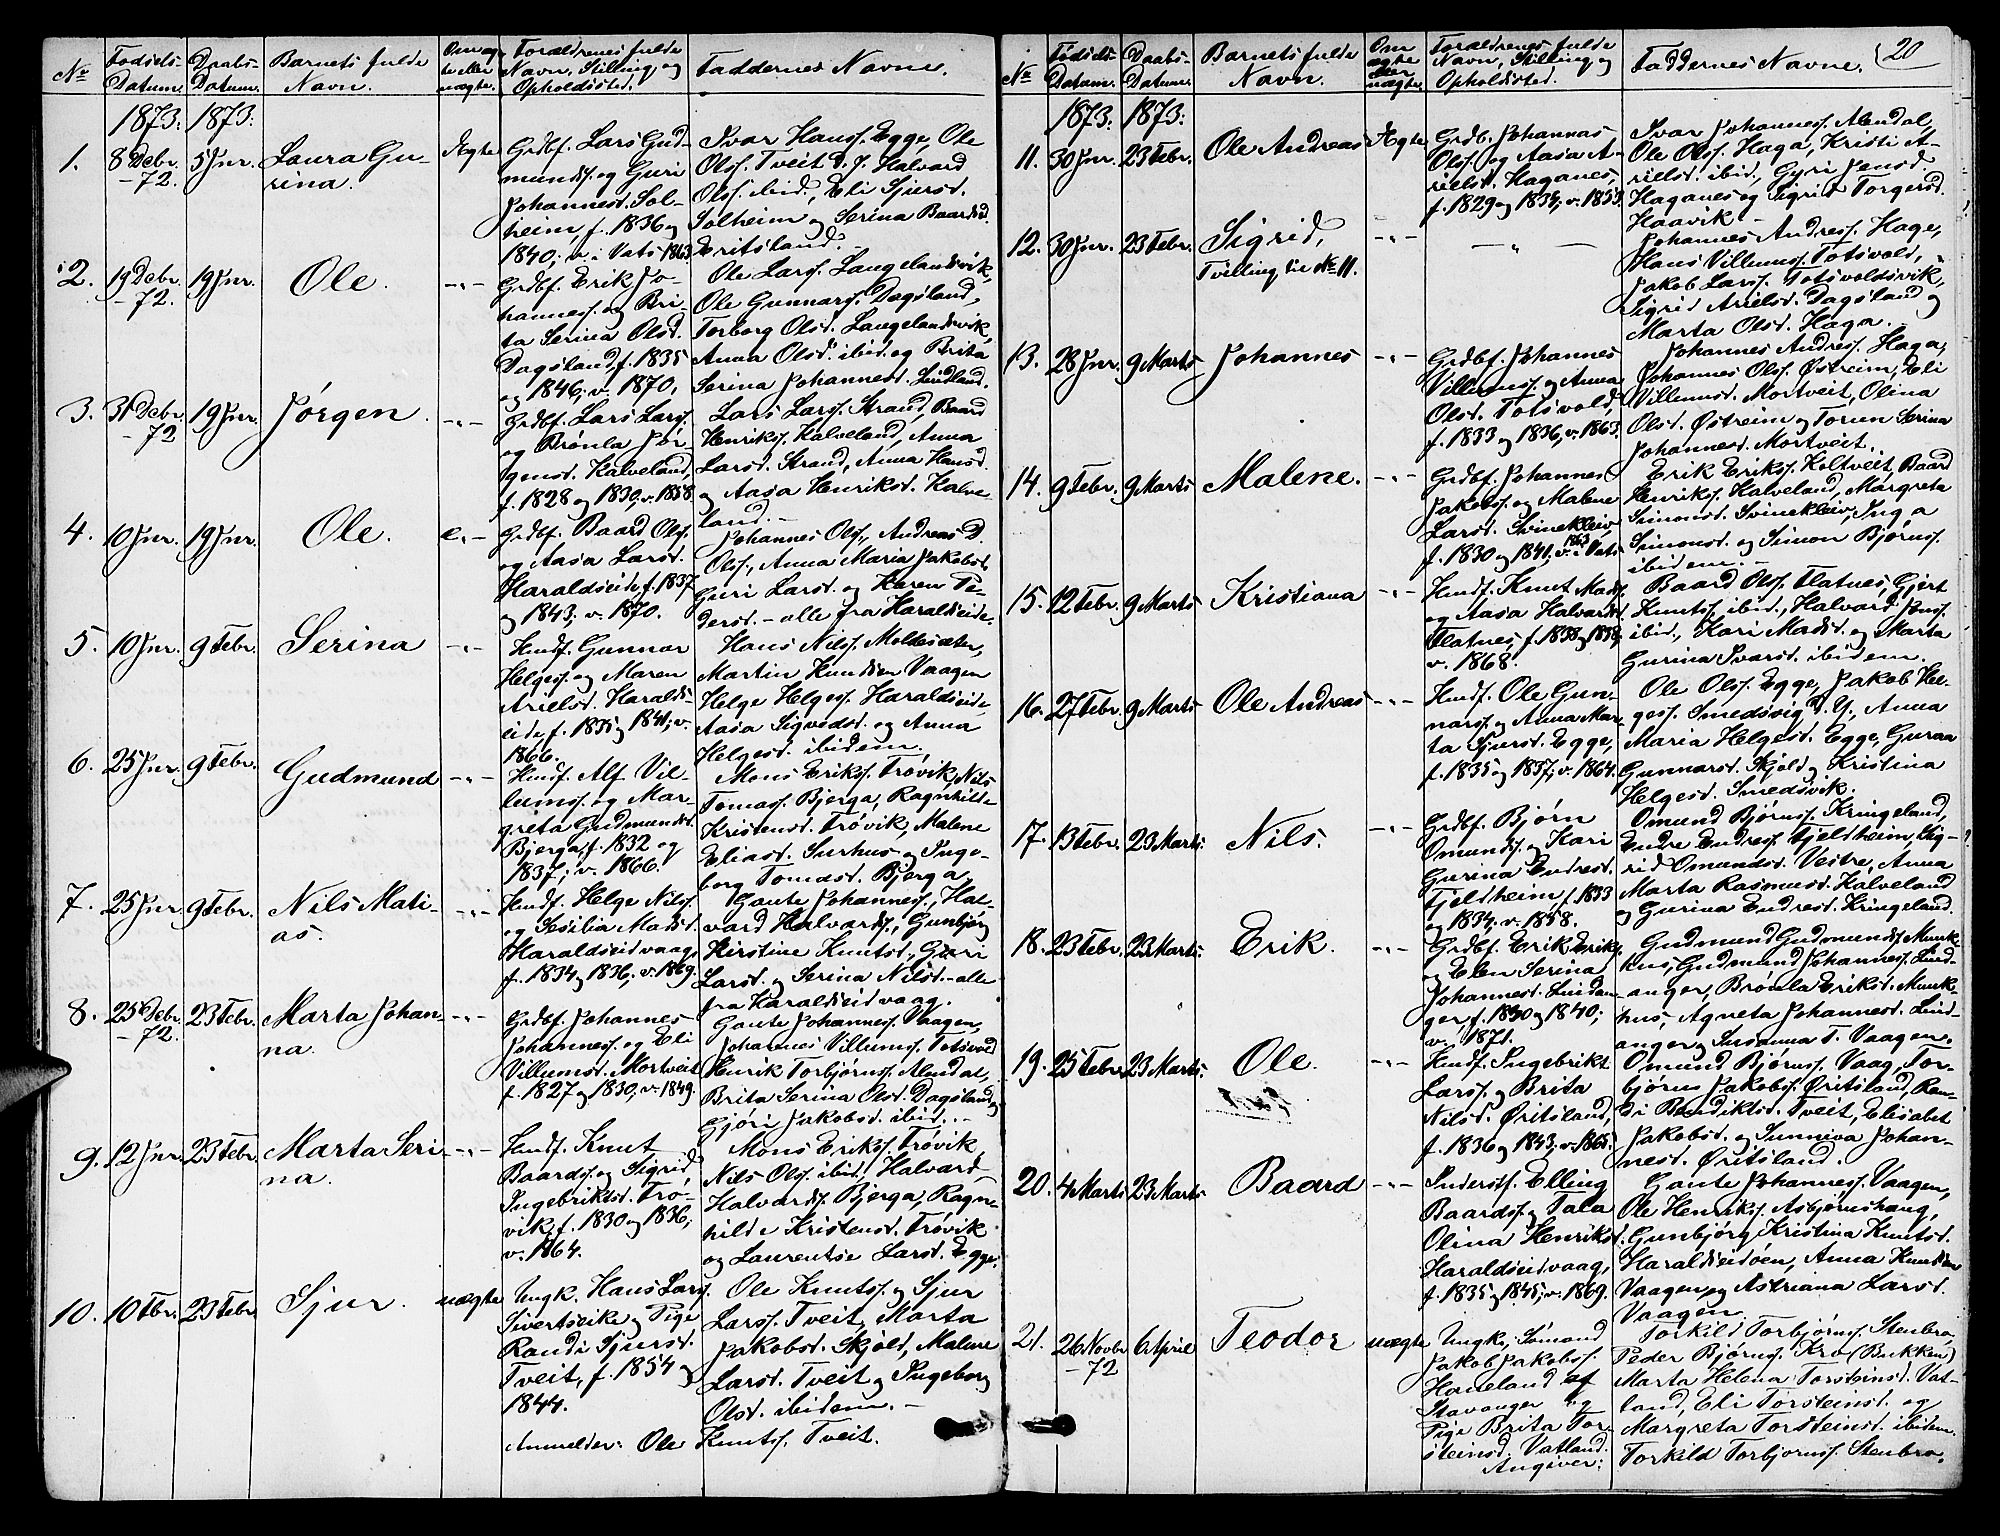 20
No Fødsels- Datum. Daabs- Datum. Barnets fulde Navn. Om ægte eller uægte. Forældrenes fulde Navn, Stilling og Opholdssted. Faddernes Navne.
1873: 1873:
1. 8 Debr. -72. 5 Jnr. Laura Gu-
rina.
Ægte
Grdbf. Lars Gud-
munds. og Guri
Johannesd. Sol-
heim, f. 1836 og
1840; v. i Vats 1863
Ivar Hanss. Egge, Ole
Ols. Tveit d. y. Halvard
Ols. ibid., Eli Sjursd.
Solheim og Serina Baardsd.
Eritsland.
2. 19 Debr. -72. 19 Jnr. Ole. -"-
Grdbf. Erik Jo-
hanness. og Bri-
ta Serina Olsd.
Dagsland, f. 1835
og 1846; v. 1870.
Ole Larss. Langelandsvik,
Ole Gunnars. Dagsland,
Torborg Olsd. Langelandsvik,
Anna Olsd. ibid. og Brita
Serina Johannesd. Lindland.
3. 31 Debr. -72 19 Jnr. Jørgen. -"-
Grdbf. Lars Larss.
og Brønla Jør-
gensd. Kalveland,
f. 1828 og 1830; v. 1858.
Lars Larss. Strand, Baard
Henriks. Kalveland, Anna
Larsd. Strand, Anna Hansd.
og Aasa Henriksd. Kalve-
land.-
4. 10 Jnr. 19 Jnr. Ole.
Grdbf. Baard Ols.
og Aasa Larsd.
Haraldseide, f. 1837
og 1843; v. 1870.
Johannes Ols., Andreas D.
Ols., Anna Maria Jakobsd.
Guri Larsd. og Karen Pe-
dersd. - alle fra Haraldseide.
5. 10 Jnr. 9 Febr. Serina -"-
Husf. Gunnar
Helgess. og Maren
Arielsd. Haralds-
eide, f. 1835 og 1841; v.
1866.
Hans Nils. Moldesæter,
Martin Knudsen Vaagen
Helge Helges. Haraldseide,
Aasa Sigvedsd. og Anna
Helgesd. ibidem.
6. 25 Jnr. 9 Febr. Gudmund -"-
Husf. Alf Vil-
lums. og Mar-
greta Gudmundsd.
Bjerga, f. 1832 og
1837; v. 1866.
Mons Eriks. Trøvik, Nils
Tomass. Bjerga, Ragnhilde
Kristensd. Trøvik, Malene
Eliasd. Surhus og Inge-
borg Tomasd. Bjerga
7. 25 Jnr. 9 Febr. Nils Mati-
as. -"-
Husf. Helge Nils.
og Sesilia Madsd.
Haraldseidvaag
f. 1834 og 1836, v. 1869.
Gaute Johanness., Hal-
vard Halvards., Gunbjør
Kirstine Knutsd., Guri
Larsd. og Serina Nilsd. - alle
fra Haraldseidvaag.
8. 25 Debr. -72. 23 Febr. Marta Johan-
na. -"-
Grdbf. Johannes
Johanness. og Eli
Villumsd. Mortveit
f. 1827 og 1830; v. 1849.
Gaute Johanness. Vaagen,
Johannes Villums. Totsvold
Henrik Torbjørns. Alendal,
Brita Serina Olsd. Dagsland og
Gjøri Jakobsd. ibid...
9. 12 Jnr. 23 Febr. Marta Seri-
na. -"-
Husf. Knut
Baards. og Sigrid
Ingebriktsd. Trø-
vik, f. 1830 og 1836;
v. 1864.
Mons Eriks. Trøvik,
Nils Ols. ibid., Halvard
Halvards. Bjerga, Ragn-
hilde Kristensd. Trøvik
og Laurentse Larsd. Egge.
10. 10 Fbr. 23 Febr Sjur. uægte
Ungk. Hans Lars.
Sivertseike og Pige
Randi Sjursd.
Tveit, f. 1854 og
1844.
Ole Knuts. og Sjur
Larss. Tveit, Marta
Jakobsd. Skjold, Malene
Larsd. Tveit og Ingeborg
Olsd. ibidem. -
Anmelder: Ole Knuts. Tveit.
No Fødsels- Datum. Daabs- Datum. Barnets fulde Navn. Om ægte eller uægte. Forældrenes fulde Navn, Stilling og Opholdssted. Faddernes Navne.
1873: 1873:
11. 30 Jnr. 23 Febr. Ole Andreas Ægte
Grdb. Johannes
Ols. og Aasa A-
rielsd. Haganes,
f. 1829 og 1834; v. 1853.
Ivar Johanness. Alendal,
Ole Ols. Haga, Kristi A-
rielsd. ibid., Gyri Jensd.
Haganes og Sigrid Torgersd.
Haavik -
12. 30 Jnr. 23 Febr. Sigrid,
Tvilling til No 11. -"- - " -
Johannes Andress. Hage,
Hans Villums. Totsvold,
Jakob Larss. Totsvoldsvik,
Sigrid Arielsd. Dagsland og
Marta Olsd. Haga.
13. 28 Jnr. 9 Marts Johannes -"-
Grdbf. Johannes
Villums. og Anna
Olsd. Totsvold,
f. 1833 og 1836, v. 1863.
Johannes Andress. Haga,
Johannes Ols. Østreim, Eli
Villumsd. Mortveit, Olina
Olsd. Østreim og Toren Serina
Johannesd. Mortveit.
14. 9 Febr. 9 Marts Malene. -"-
Grdbf. Johannes
Jakobs. og Malene
Larsd. Svinekleiv
f. 1830 og 1841, v. i Vats 1863
Erik Eriks. Koltveit, Baard
Henriks. Kalveland, Margreta
Simonsd. Svinekleiv, Inga
Simonsd. og Simon Bjørns.
ibidem. -
15. 12 Febr. 9 Marts Kristiana -"-
Husf. Knut Mads.
og Aasa Halvardsd.
Flatnes, f. 1838 og 1838,
v. 1868.
Baard Ols. Flatnes, Gjert
Knuts. ibid., Halvard Jens.
ibid., Kari Madsd. og Marta
Gurina Ivarsd. ibidem.
16. 27 Febr. 9 Marts Ole Andreas -"-
Husf. Ole Gun-
nars. og Anna Mar-
ta Sjursd. Egge,
f. 1835 og 1837; v. 1864.
Ole Ols. Egge, Jakob Hel-
gess. Smedsvig d. y., Anna
Maria Helgesd. Egge, Guraa
Gunnarsd. Skjold og Kristina
Helgesd. Smedsvik.
17. 13 Febr. 23 Marts. Nils. -"-
Grdbf. Bjørn
Omunds. og Kari
Gurina Endresd.
Fjeldheim, f. 1833
og 1834; v. 1858.
Omund Bjørns. Kringeland,
Endre Endress. Fjeldheim, Sig-
rid Omundsd. Vestre, Anna
Marta Rasmusd. Kalveland
og Gurina Endresd. Kringeland.
18. 23 Febr. 23 Marts. Erik. -"-
Grdbf. Erik Eriks.
og Elen Serina
Johannesd. Lindan-
ger, f. 1830 og 1840;
v. 1871.
Gudmund Gudmunds. Munk-
hus, Gudmund Johanness. Lind-
anger, Brønla Eriksd. Munk-
hus, Agneta Johannesd. Lind-
anger og Susanna T. Vaagen.
19. 25 Febr. 23 Marts. Ole. -"-
Husf. Ingebrikt
Larss. og Brita
Nilsd. Øritsland,
f. 1836 og 1843; v. 1865.
Omund Bjørns. Vaag, Tor-
bjørns Jakobs. Øritsland, Ran-
di Bendiktsd. Tveit, Elisabet
Jakobsd. og Sunniva Johan-
nesd. Øritsland.
20. 4 Marts 23 Marts Baard -"-
Inderstf. Elling
Baards. og Tala
Olina Henriksd.
Haraldseidvaag,
f. 1835 og 1845; v. 1869.
Gaute Johanness. Vaagen,
Ole Henriks. Asbjørnshaug,
Gunbjørg Kristina Knutsd.
Haraldseidøen, Anna Knudsen
Vaagen og Astriana Larsd.
Vaagen
21. 26 Novbr -72 6 April Teodor uægte
Ungk., Sømand
Jakob Jakobs.
Haneland af
Stavanger og
Pige Brita Tor-
steinsd. Vatland.
Angiver:
Torkild Torbjørns. Stenbro,
Peder Bjørns. Kro (Bukken)
Marta Helena Torsteinsd. Vat-
land, Eli Torsteinsd. og
Margreta Torsteinsd. ibidem
Torkild Torbjørns. Stenbro.